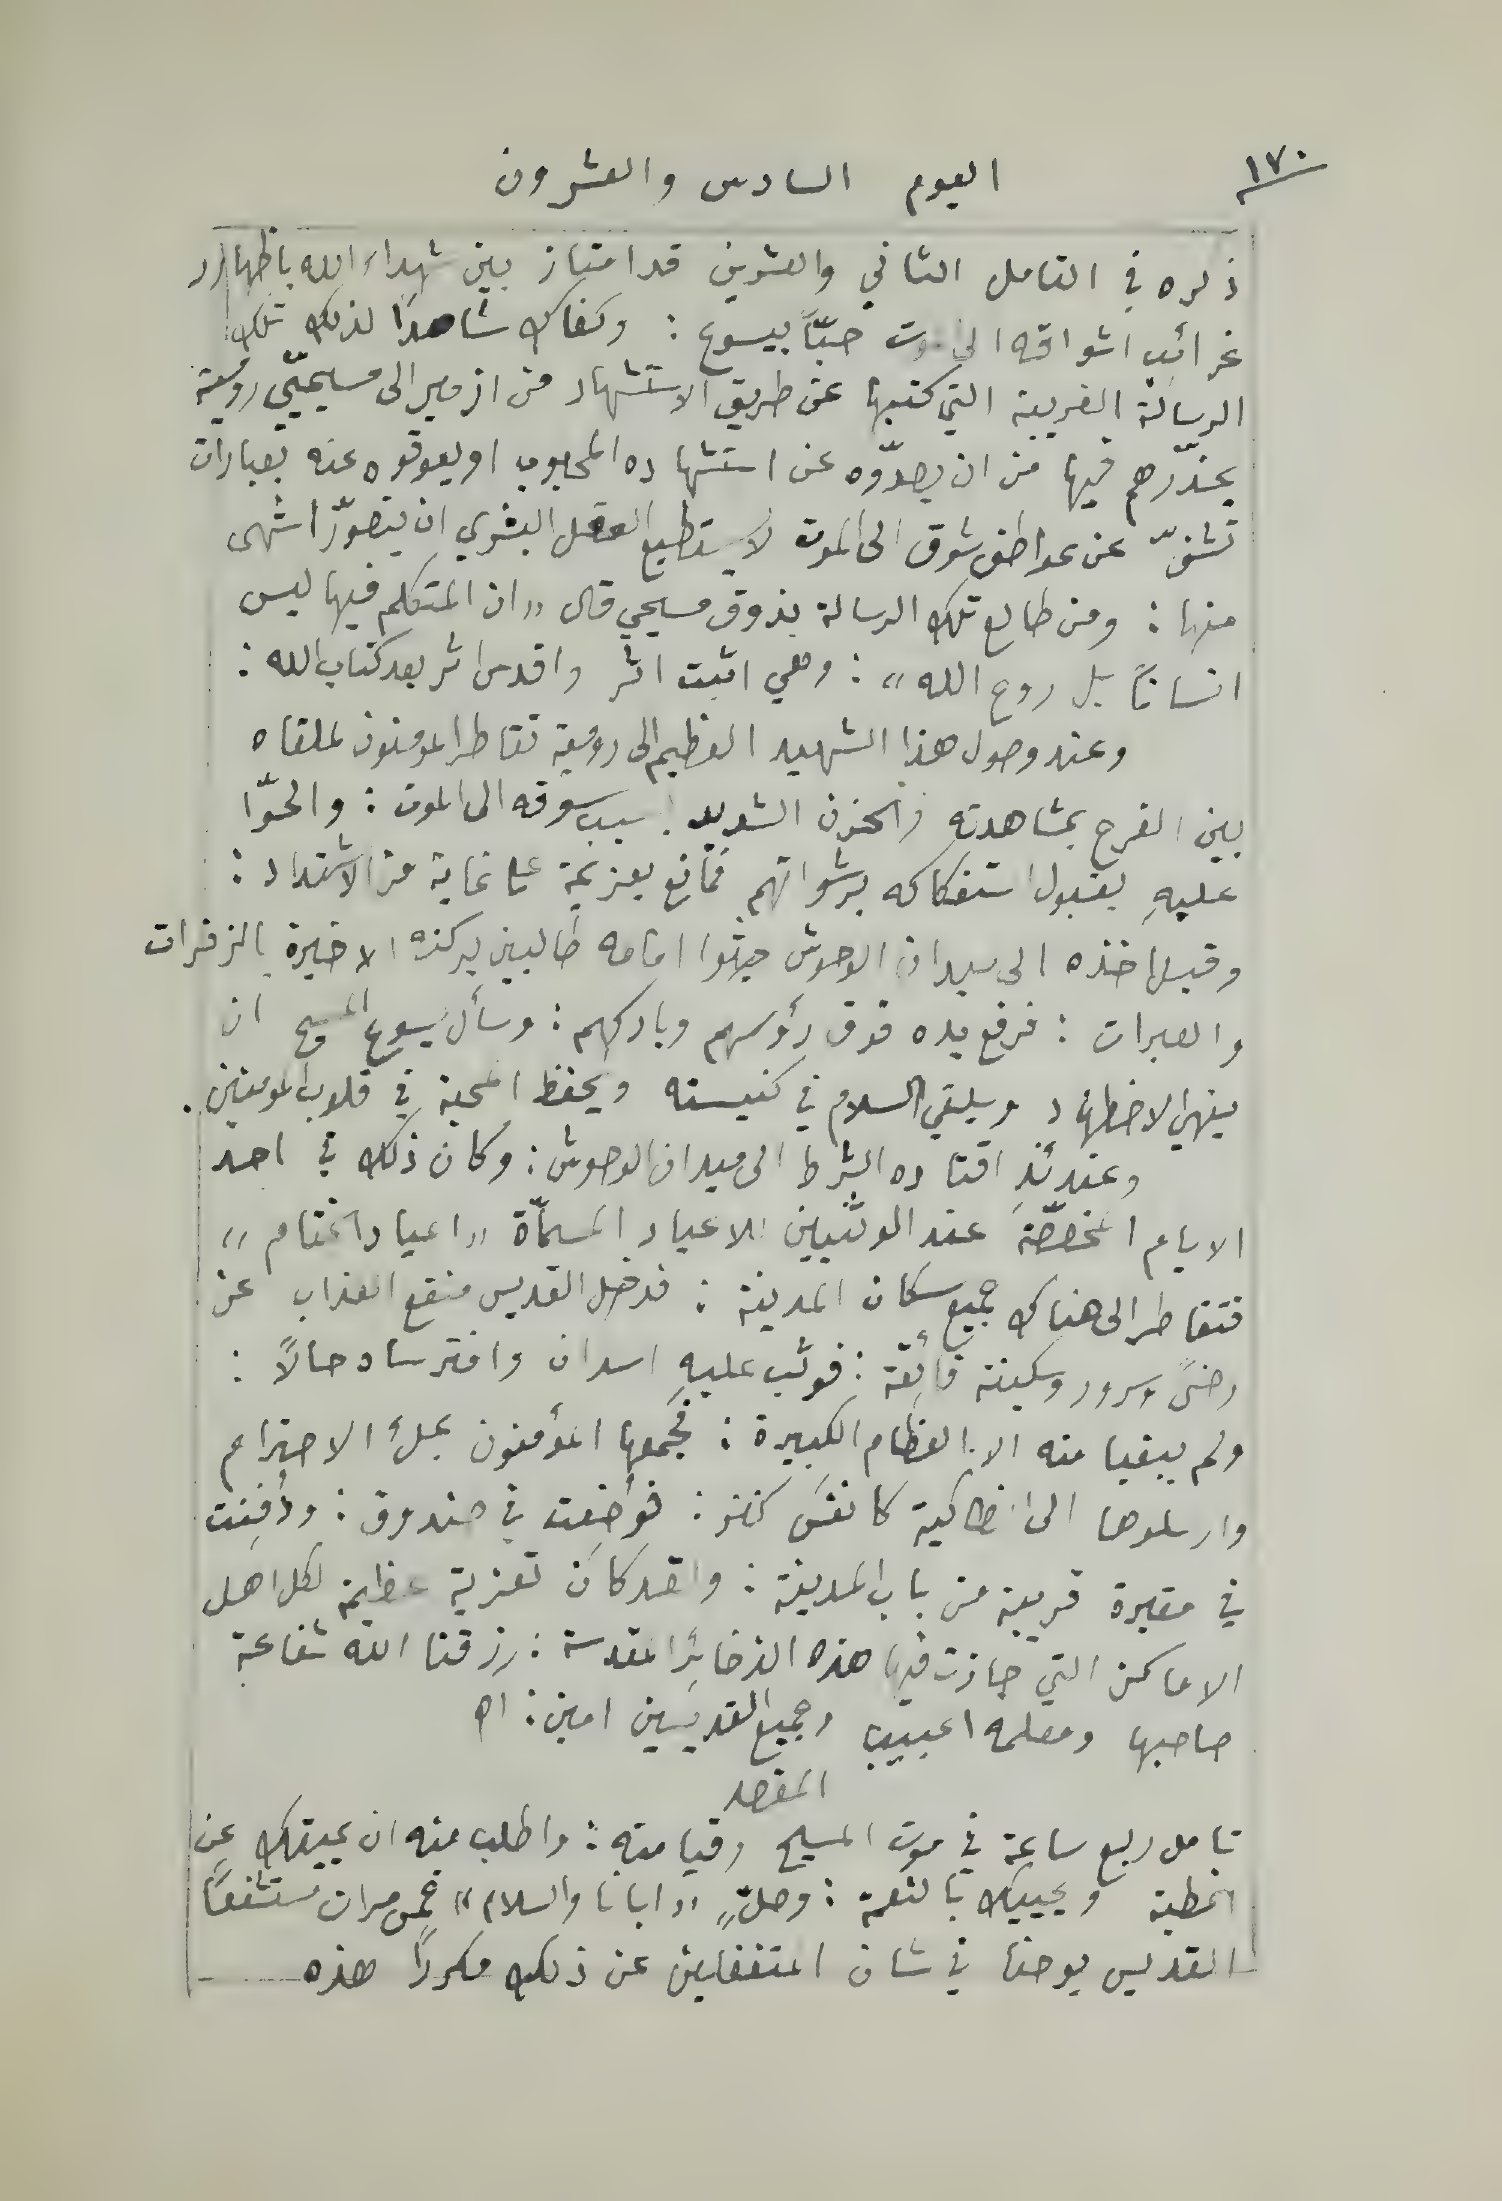 ١٧٠
اليوم السادس والعشرون
ذكره في التامل الثاني والعشرين قد امتاز بين شهداء الله باظهار
غرائب اشواقه الى الموت حبّاً بيسوع : وكفاك شاهدًا لذلك تلك
الرسالة الغريبة التي كتبها عن طريق الاستشهاد من ازمير الى مسيحيّي رومية
يحذّرهم فيها من ان يصدّوه عن استشهاده المحبوب او يعوقوه عنه بعبارات
تشفّ عن عواطف شوق الى الموت لا يستطيع العقل البشري ان يتصوّر اشهى
منها : ومن طالع تلك الرسالة بذوق مسيحي قال «ان المتكلم فيها ليس
انساناً بل روح الله» : وهي اثبت اثر واقدس اثر بعد كتاب الله :
وعند وصول هذا الشهيد العظيم الى رومية تقاطر المومنون لملقاه
بين الفرح بمشاهدته والحزن الشديد بسبب سوقه الى الموت : والحوّا
عليهِ بقبول استفكاكه برشواتهم فمانع بعزيمة على غاية من الاشتداد :
وقبل اخذه الى ميدان الوحوش جثوا امامه طالبين بركته الاخيرة بالزفرات
والعبرات : فرفع يده فوق رؤوسهم وباركهم : وسأل يسوع المسيح ان
ينهي الاضطهاد ويلقي السلام في كنيسته ويحفظ المحبة في قلوب المومنين .
وعندئذٍ اقتاده الشرط الى ميدان الوحوش : وكان ذلك في احد
الايام المخصّصة عند الوثنيين للاعياد المسمّاة «اعياد الختام»
فتقاطر الى هناك جميع سكان المدينة : فدخل القديس منقع العذاب عن
رضىً وسرور وسكينة فائقة : فوثب عليهِ اسدان وافترساه حالاً :
ولم يبقيا منه الا العظام الكبيرة : فجمعها المؤمنون بملء الاحترام
وارسلوها الى انطاكية كانفس كنز : فوُضِعت في صندوق : ودُفِنت
في مقبرة قريبة من باب المدينة : ولقد كان تعزية عظيمة لكل اهل
الاماكن التي جازت فيها هذه الذخائر المقدسة : رزقنا الله شفاعة
صاحبها ومعلمه الحبيب وجميع القديسين امين : اه
المقصد
تامل ربع ساعة في موت المسيح وقيامته : واطلب منه ان يميتك عن
الخطية ويحييك بالنعمة : وصلّ «ابانا والسلام» خمس مرات مستشفعًا
القديس يوحنا في شان المتغفلين عن ذلك مكررًا هذه